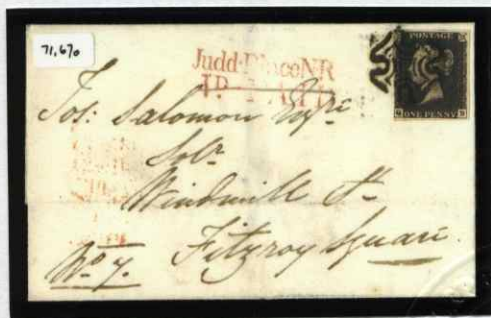 71,670
Judd-Place NR
1D PAID
POSTAGE
ONE PENNY
Jos: Salomon Esqre
Solr
Windmill St.
Fitzroy Square.
No 7.